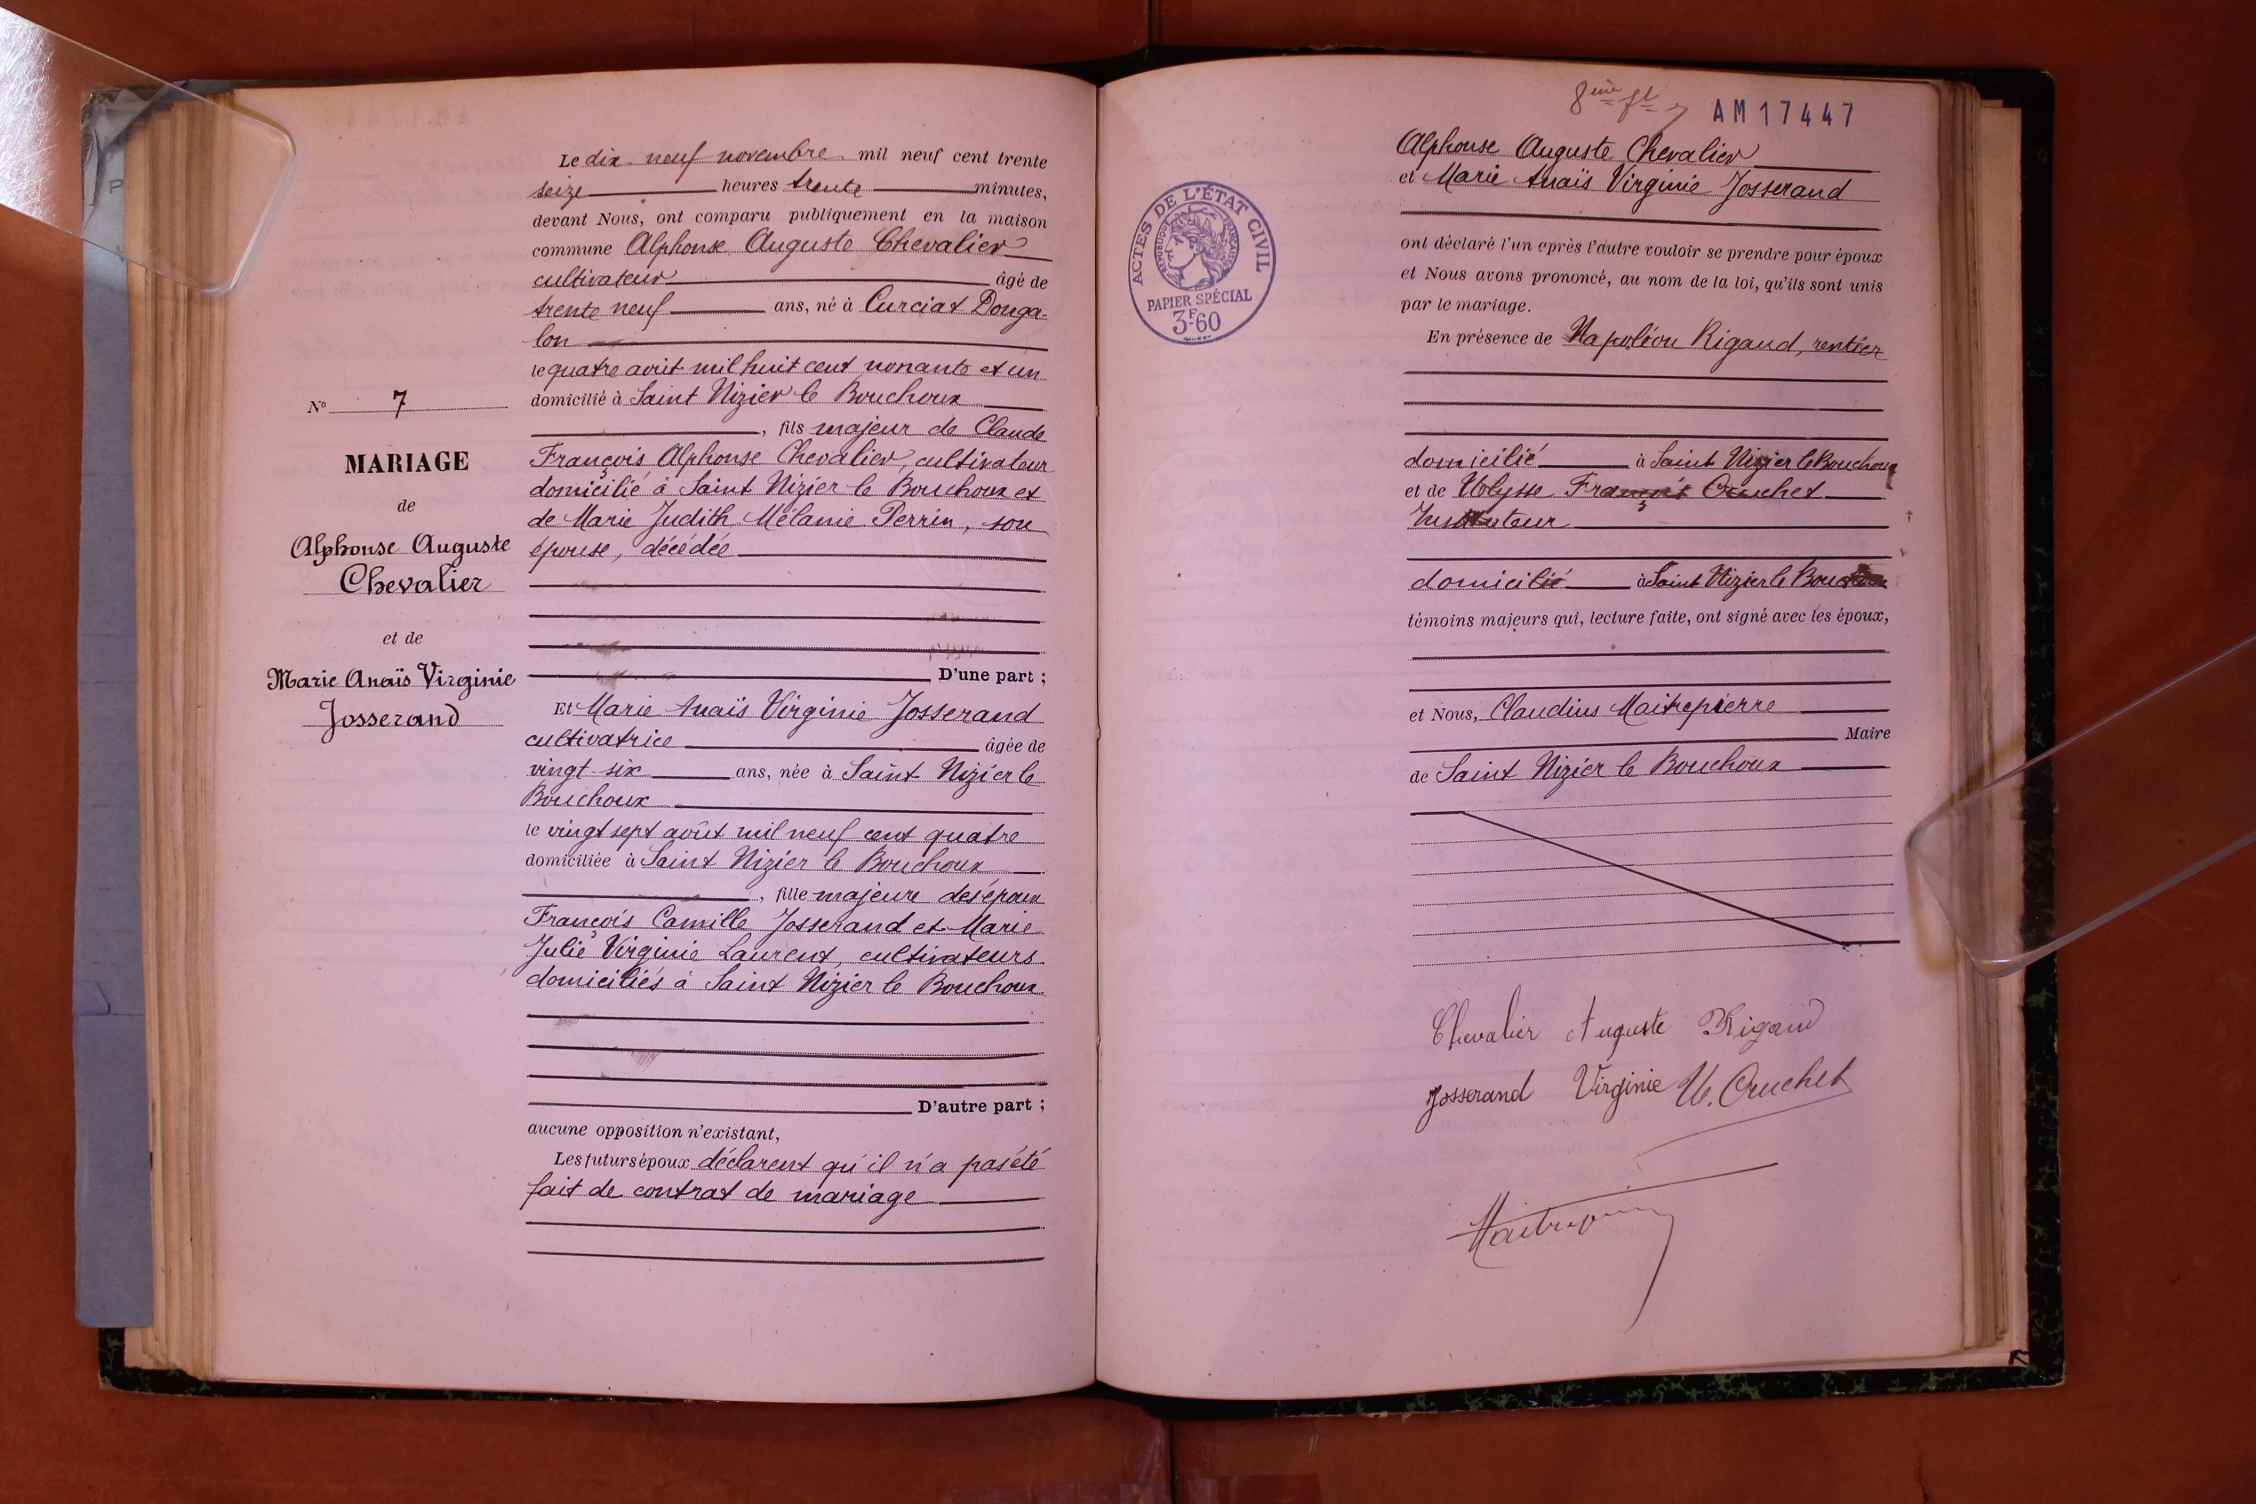 Le dix neuf novembre mil neuf cent trente
seize heures trente minutes,
devant Nous, ont comparu publiquement en la maison
commune Alphonse Auguste Chevalier
cultivateur âgé de
trente neuf ans, né à Curciat Donga-
lon
le quatre août mil huit cent nonante et un
domicilié à Saint Nizier le Bouchoux
, fils majeur de Claude
François Alphonse Chevalier, cultivateur
domicilié à Saint Nizier le Bouchoux et
de Marie Judith Mélanie Perrin, son
épouse, décédée
D'une part ;
Et Marie Anaïs Virginie Josserand
cultivatrice âgée de
vingt six ans, née à Saint Nizier le
Bouchoux
le vingt sept août mil neuf cent quatre
domiciliée à Saint Nizier le Bouchoux
, fille majeure des époux
François Camille Josserand et Marie
Julie Virginie Laurent, cultivateurs
domiciliés à Saint Nizier le Bouchoux
D'autre part ;
aucune opposition n'existant,
Les futurs époux déclarent qu'il n'a pas été
fait de contrat de mariage
N° 7
MARIAGE
de
Alphonse Auguste
Chevalier
et de
Marie Anaïs Virginie
Josserand
8ème flt
AM17447
ACTES DE L'ÉTAT CIVIL
RÉPUBLIQUE FRANÇAISE
PAPIER SPÉCIAL
3F60
Alphonse Auguste Chevalier
et Marie Anaïs Virginie Josserand
ont déclaré l'un après l'autre vouloir se prendre pour époux
et Nous avons prononcé, au nom de la loi, qu'ils sont unis
par le mariage.
En présence de Napoléon Rigaud, rentier
domicilié à Saint Nizier le Bouchoux
et de Ulysse François Cruchet
Instituteur
domicilié à Saint Nizier le Bouchoux
témoins majeurs qui, lecture faite, ont signé avec les époux,
et Nous, Claudius Maitrepierre
Maire
de Saint Nizier le Bouchoux
Chevalier Auguste Rigaud
Josserand Virginie U. Cruchet
Maitrepierre